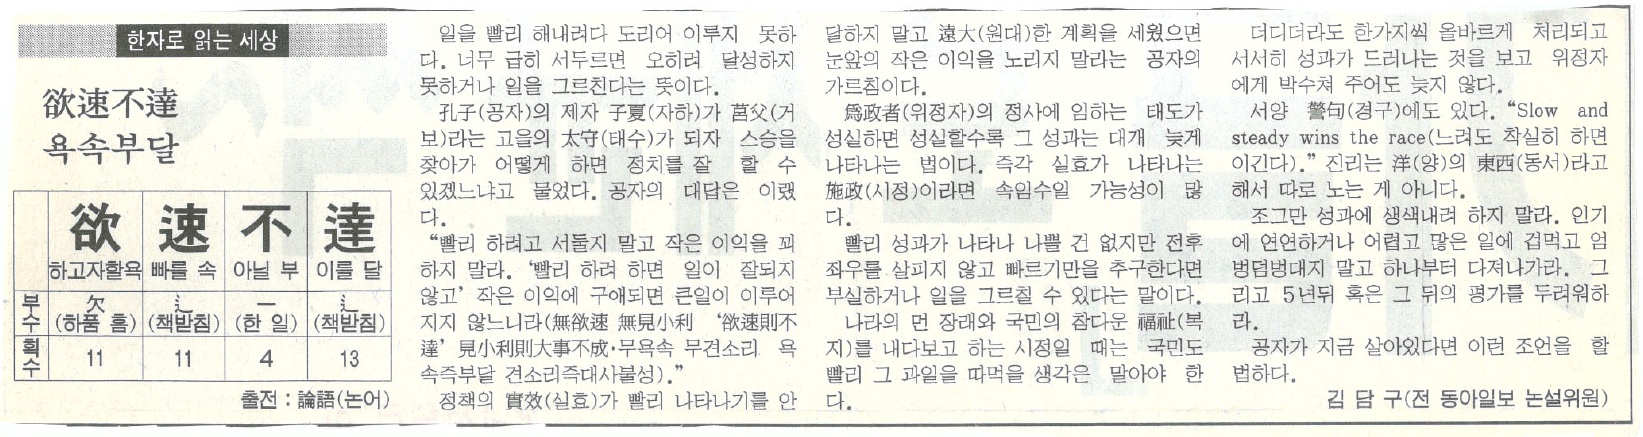 한자로 읽는 세상
欲速不達
욕속부달
欲 速 不 達
하고자할욕 빠를 속 아닐 부 이를 달
부수 欠 辶 一 辶
(하품 흠) (책받침) (한 일) (책받침)
획수 11 11 4 13
출전 : 論語(논어)
일을 빨리 해내려다 도리어 이루지 못하
다. 너무 급히 서두르면 오히려 달성하지
못하거나 일을 그르친다는 뜻이다.
孔子(공자)의 제자 子夏(자하)가 莒父(거
보)라는 고을의 太守(태수)가 되자 스승을
찾아가 어떻게 하면 정치를 잘 할 수
있겠느냐고 물었다. 공자의 대답은 이랬
다.
“빨리 하려고 서둘지 말고 작은 이익을 꾀
하지 말라. ‘빨리 하려 하면 일이 잘되지
않고’ 작은 이익에 구애되면 큰일이 이루어
지지 않느니라(無欲速 無見小利 ‘欲速則不
達’ 見小利則大事不成·무욕속 무견소리 욕
속즉부달 견소리즉대사불성).”
정책의 實效(실효)가 빨리 나타나기를 안
달하지 말고 遠大(원대)한 계획을 세웠으면
눈앞의 작은 이익을 노리지 말라는 공자의
가르침이다.
爲政者(위정자)의 정사에 임하는 태도가
성실하면 성실할수록 그 성과는 대개 늦게
나타나는 법이다. 즉각 실효가 나타나는
施政(시정)이라면 속임수일 가능성이 많
다.
빨리 성과가 나타나 나쁠 건 없지만 전후
좌우를 살피지 않고 빠르기만을 추구한다면
부실하거나 일을 그르칠 수 있다는 말이다.
나라의 먼 장래와 국민의 참다운 福祉(복
지)를 내다보고 하는 시정일 때는 국민도
빨리 그 과일을 따먹을 생각은 말아야 한
다.
더디더라도 한가지씩 올바르게 처리되고
서서히 성과가 드러나는 것을 보고 위정자
에게 박수쳐 주어도 늦지 않다.
서양 警句(경구)에도 있다. “Slow and
steady wins the race(느려도 착실히 하면
이긴다).” 진리는 洋(양)의 東西(동서)라고
해서 따로 노는 게 아니다.
조그만 성과에 생색내려 하지 말라. 인기
에 연연하거나 어렵고 많은 일에 겁먹고 엄
벙덤벙대지 말고 하나부터 다져나가라. 그
리고 5년뒤 혹은 그 뒤의 평가를 두려워하
라.
공자가 지금 살아있다면 이런 조언을 할
법하다.
김 담 구(전 동아일보 논설위원)